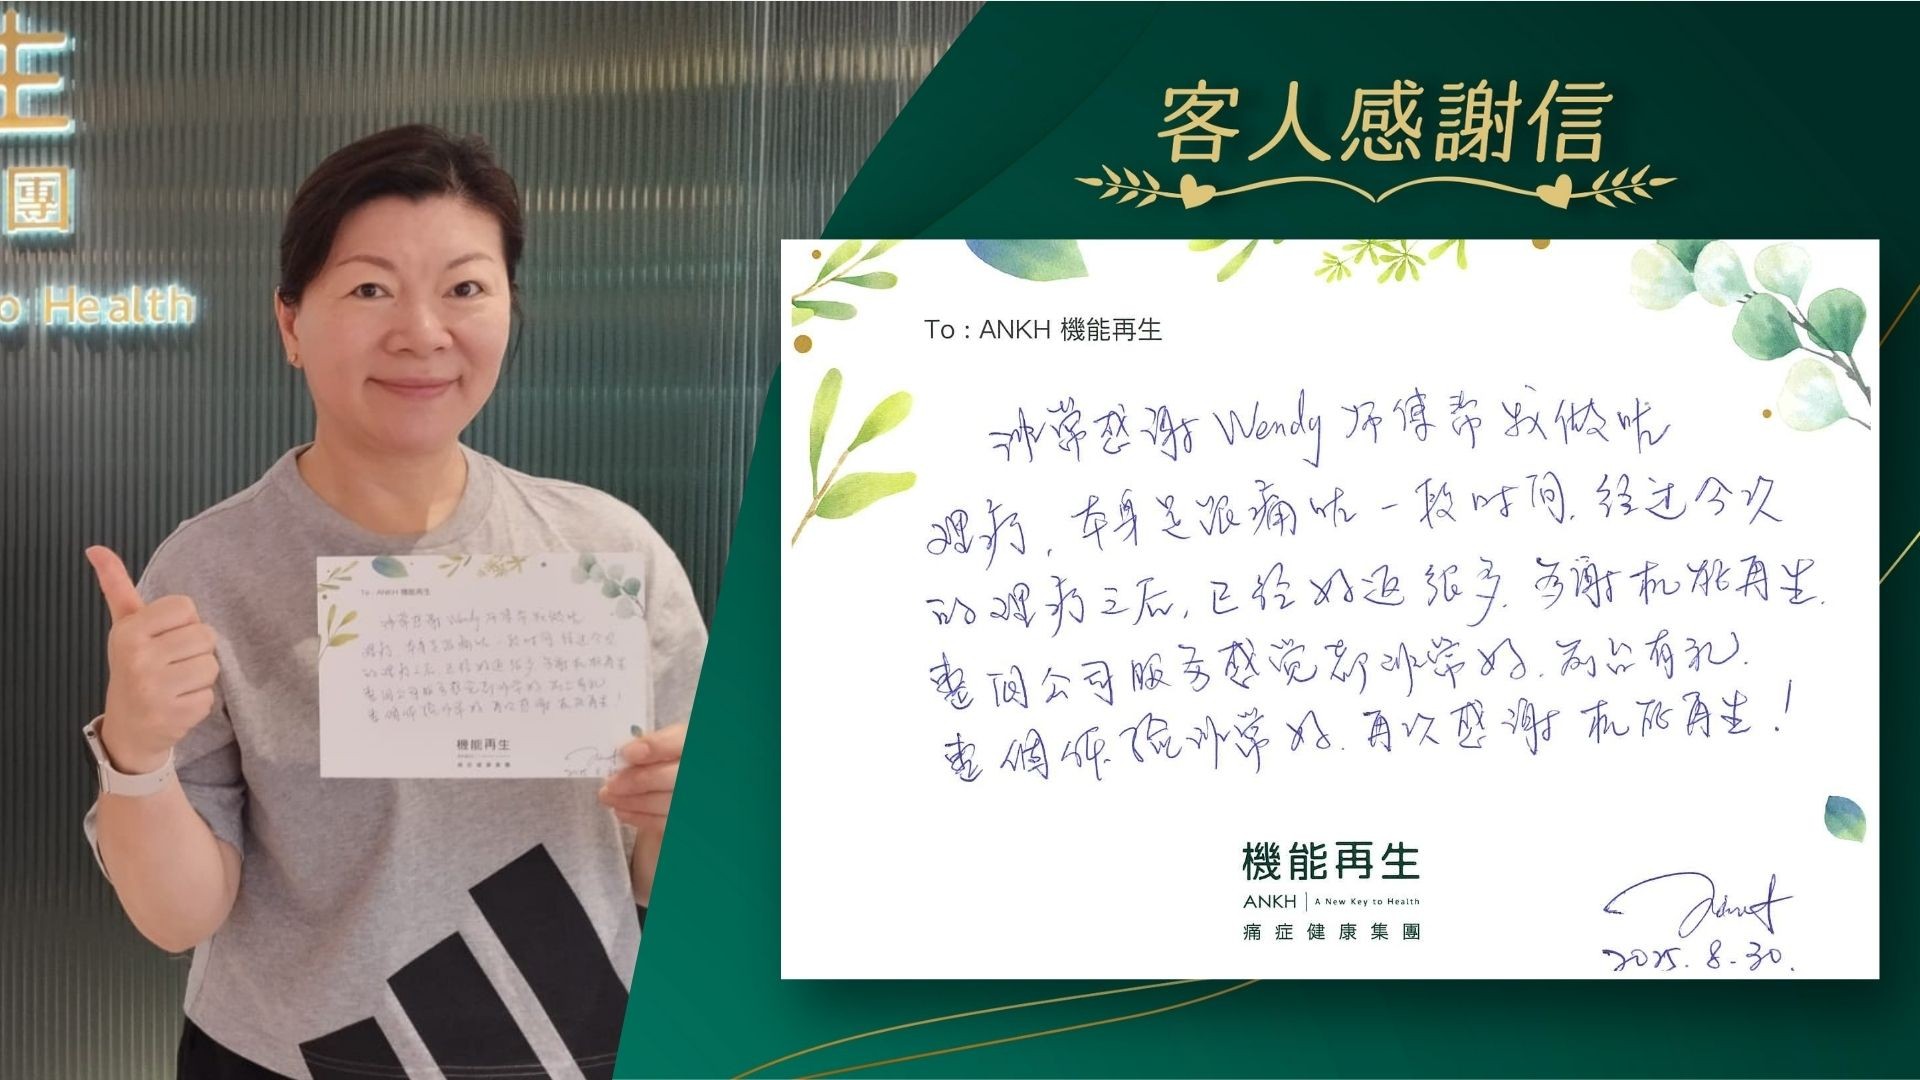 生
團
o Health
客人感謝信
To : ANKH 機能再生
非常感谢 Wendy 师傅帮我做咗
理疗, 本身足跟痛咗一段时间, 经过今次
的理疗之后, 已经好返很多, 多谢机能再生.
整间公司服务感觉都非常好, 前台有礼.
整個体验非常好. 再次感谢机能再生!
機能再生
ANKH | A New Key to Health
痛症健康集團
Janet
2025.8.30.